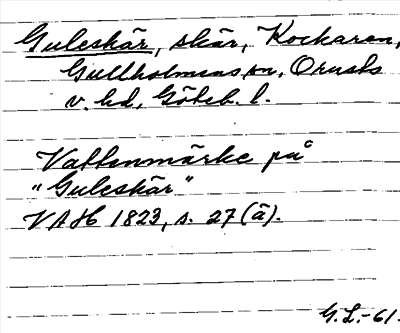 Guleskär, skär, Kockaren,
Gullholmens sn, Orusts
v. hd, Göteb. l.
Vattenmärke på
"Guleskär"
VAH 1823, s. 27 (ä).
G.L.-61.